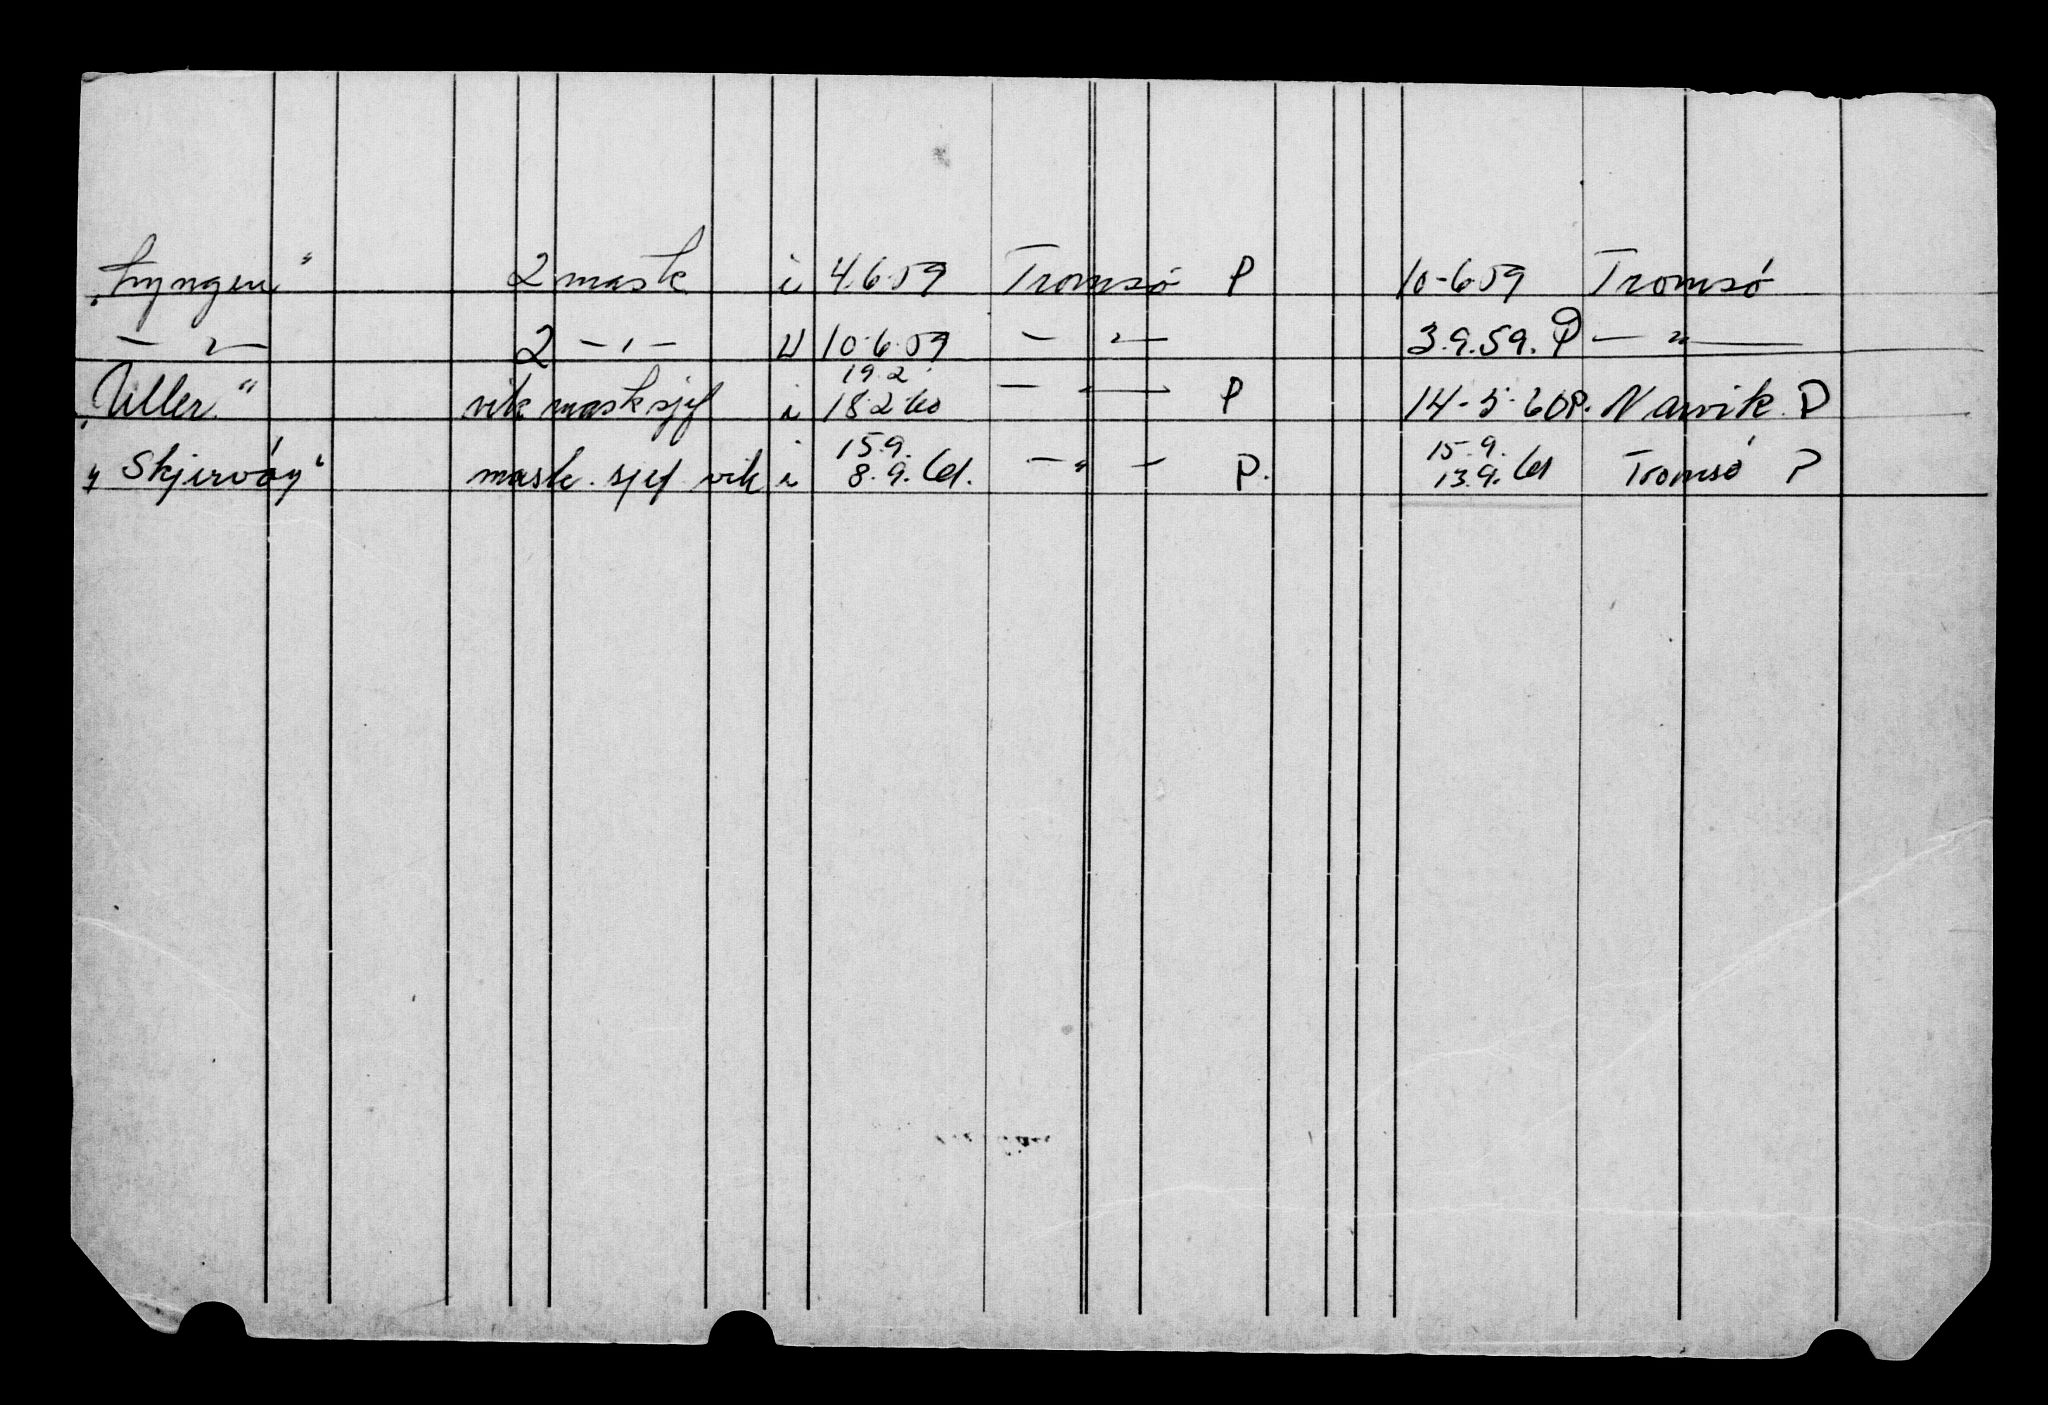 "Lyngen" 2 mask i 4.6.59 Tromsø P 10-6.59 Tromsø
— " — 2 — " — U 10.6.59 — " — 3.9.59. P — " —
"Uller" vik masksjef i 19.2. 18.2.60 — " — P 14-5-60P. Narvik. P
"Skjervøy" mask. sjef vik i 15.9. 8.9.61. — " — P. 15.9. 13.9.61 Tromsø P